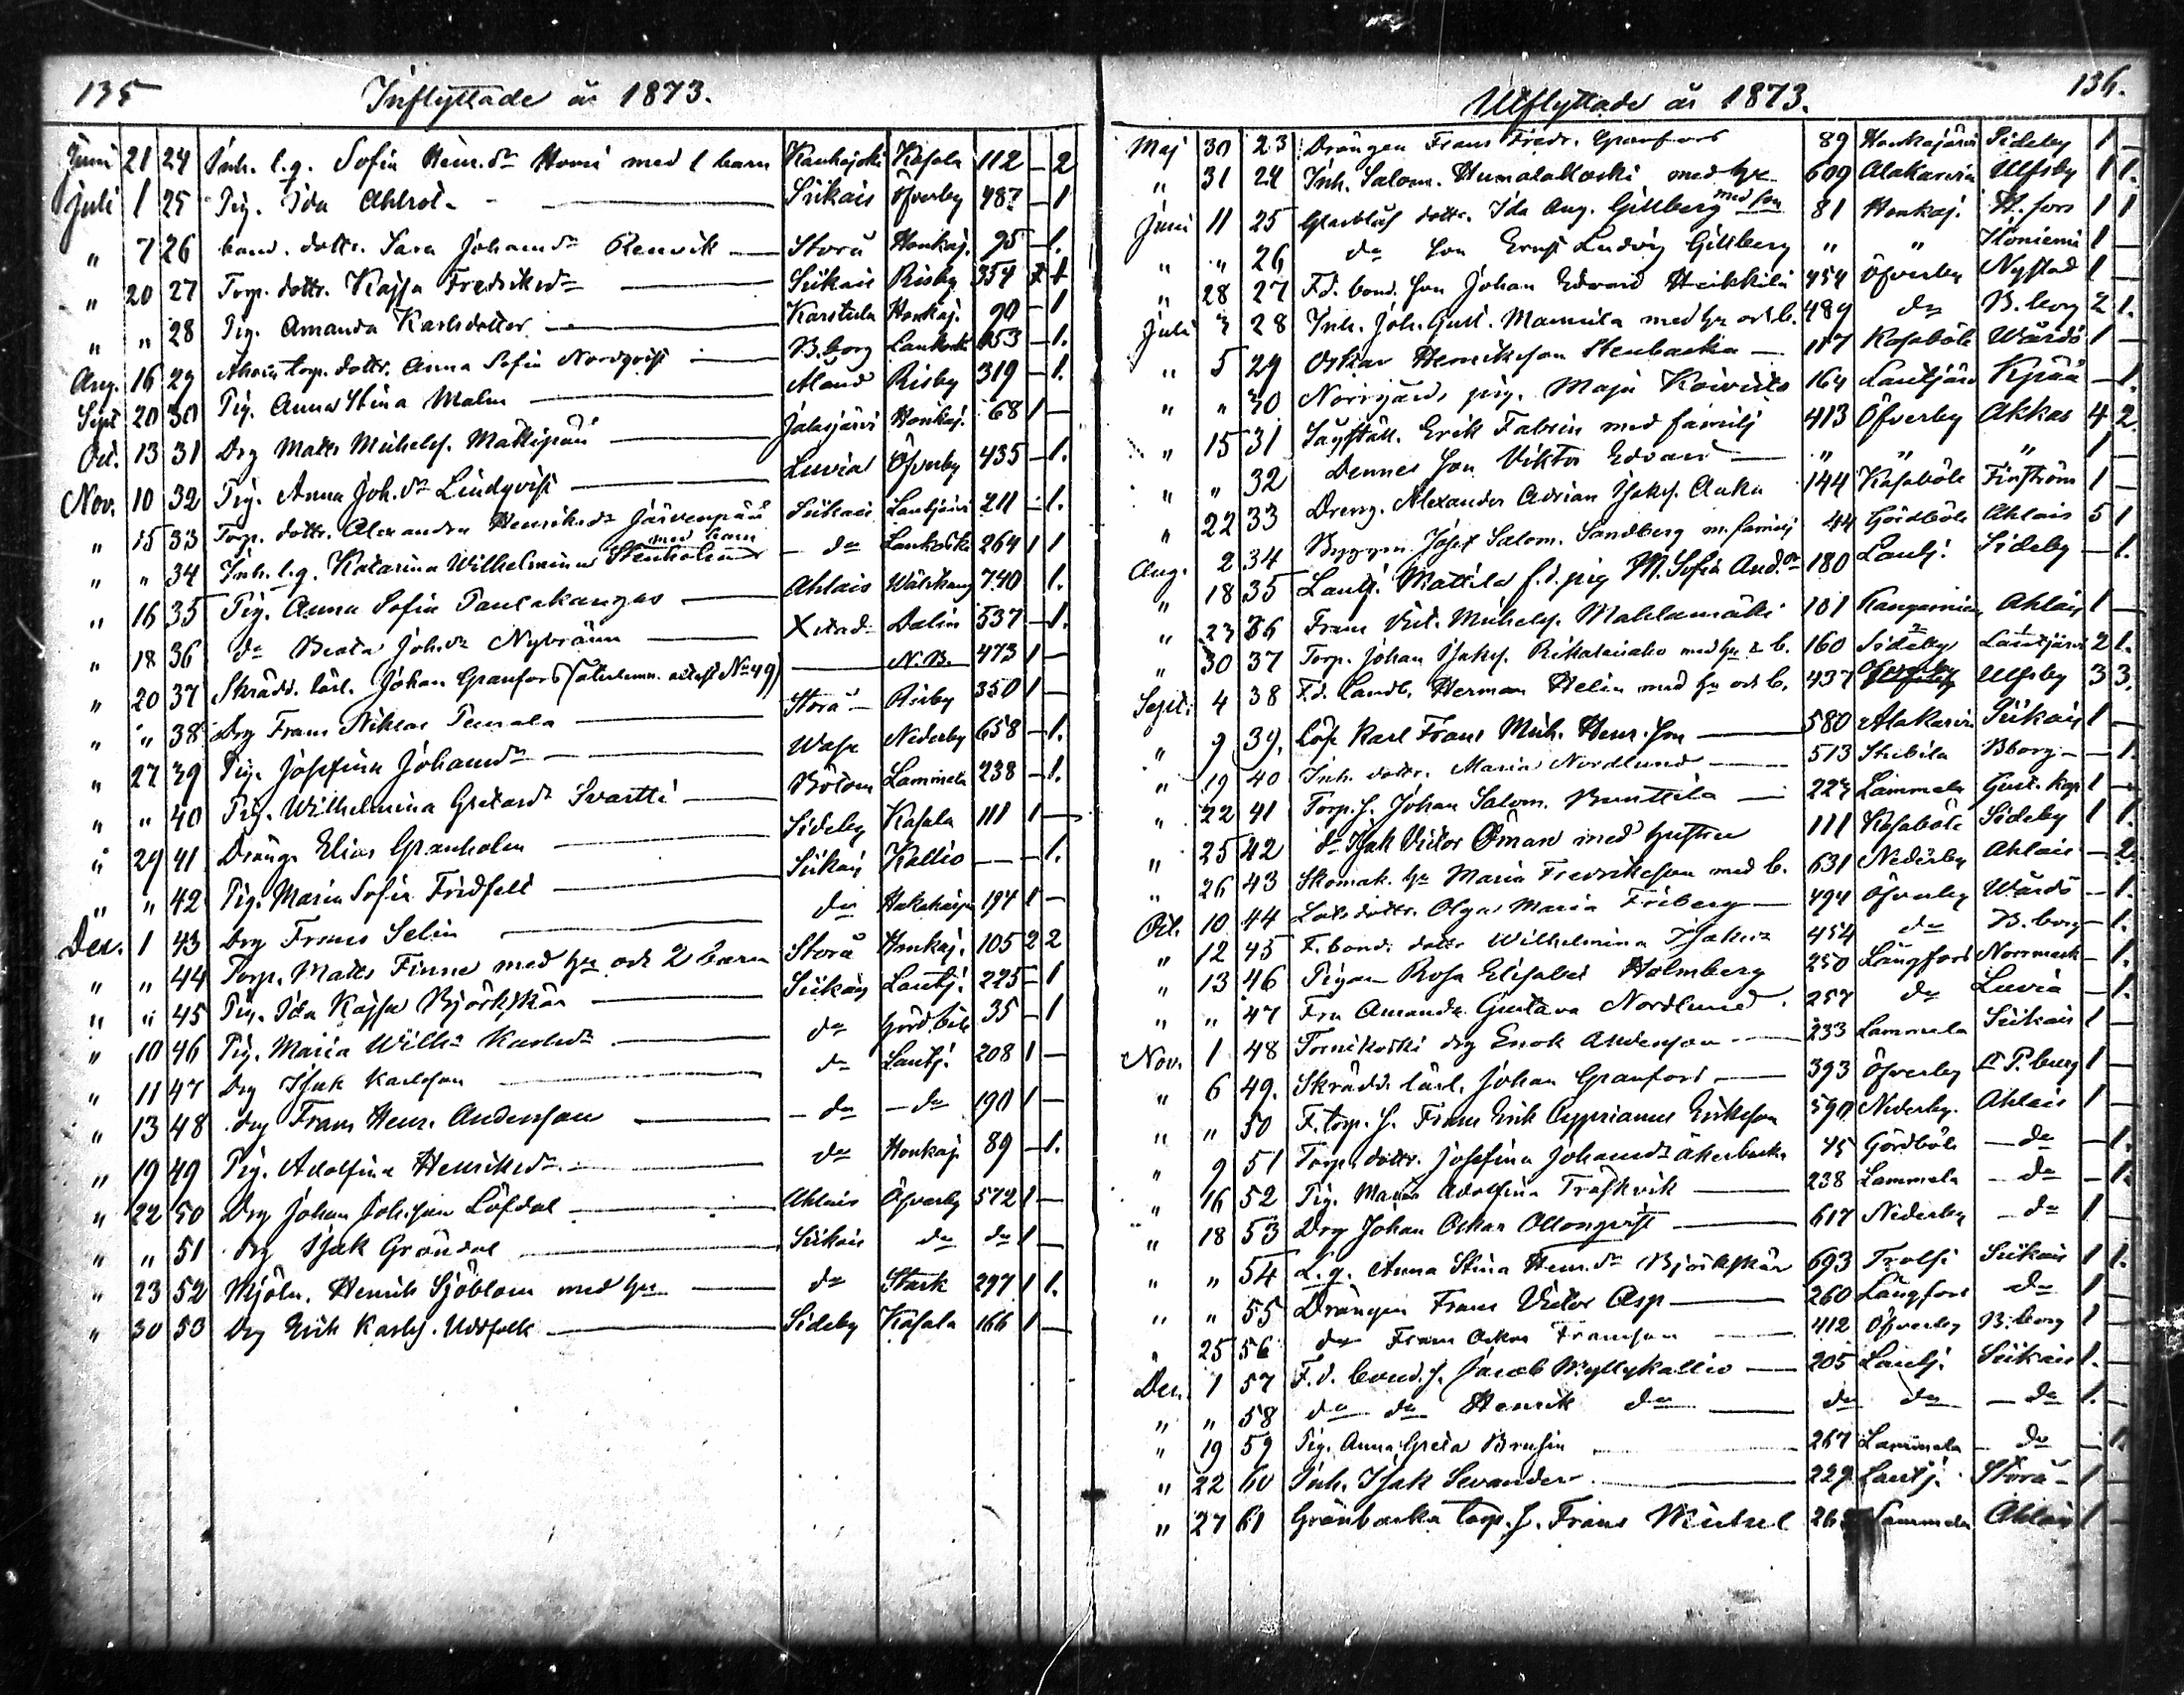 135 Inflyttade år 1873.
Juni 21 24 Inh. l.g. Sofia Henr.dr Homi med 1 barn Kankajoki Kasala 112 – 2
Juli 1 25 Pig. Ida Ahlrot – Siikais Öfverby 487 – 1
" 7 26 bond. dottr. Sara Johansdr Renvik – Storå Honkaj. 95 – 1.
" 20 27 Torp. dottr. Kajsa Fredriksdr Siikais Risby 354
" " 28 Pig. Amanda Karlsdotter – Karstula Honkaj. 90 – 1
Aug. 16 29 torp. dottr. Anna Sofia Nordqvist – B.borg Lankoski 653 – 1.
Sept 20 30 Pig. Anna Stina Malm – Åland Risby 319 – 1.
Oct. 13 31 Drg Matts Michelss. Mattipää – Jalasjärvi Honkaj. 68 1 –
Nov. 10 32 Pig. Anna Joh.dr Lindqvist – Luvia Öfverby 435 – 1.
" 15 33 Torp. dottr. Alexandra Henriksdr Järvenpää Siikais Lautjärvi 211 – 1.
" " 34 Inh. l.g. Katarina Wilhelmina Stenholm med barn – do Lankoski 264 1 1
" 16 35 Pig. Anna Sofia Tanlakangas – Ahlais Wälikang 740 1.
" 18 36 do Beata Joh.dr Nybränn – X stad Dalin 537 – 1.
" 20 37 Skrädd. lärl. Johan Granfors (återlemn. attest No 49) – N.B. 473 1 –
" " 38 Drg Frans Niklas Tumala – Storå – Risby 350 1 –
" 27 39 Pig. Josefina Johansdr – Wasa Nederby 658 – 1.
" " 40 Pig. Wilhelmina Gretasdr Svartti – Bötom Lammela 238 – 1.
" 29 41 Dräng. Elias Granholm – Sideby Kasala 111 1 –
" " 42 Pig. Maria Sofia Fridfelt – Siikais Kallio – – 1.
Dec. 1 43 Drg Frans Selin – do 194 1 –
" " 44 Torp. Matts Finne med hu och 2 barn Storå Honkaj. 105 2 2
" " 45 Pig. Ida Kajsa Björkskär – Siikais Lautj. 225 – 1
" 10 46 Pig. Maria Wilh:a Karlsdr – do Gördböle 35 – 1
" 11 47 Drg Isak Karlsson – do Lautj. 208 1 –
" 13 48 drg Frans Henr. Andersson – do – do 190 1 –
" 19 49 Pig. Adolfina Henriksdr – do Honkaj. 89 – 1.
" 22 50 Drg Johan Joh.sson Löfdal – Ahlais Öfverby 572 1 –
" " 51 drg Isak Gröndal – Siikais do do 1 –
" 23 52 Mjöln. Henrik Sjöblom med hu – do Stark 297 1 1.
" 30 53 Drg Erik Karlss. Uddfolk – Sideby Kasala 166 1 –
Utflyttade år 1873. 136.
Maj 30 23 Drängen Frans Fredr. Granfors 89 Honkajärvi Sideby 1 –
" 31 24 Inh. Salom. Humalakoski med hu 609 Alakarvia Ulfsby 1 1.
Juni 11 25 dottr. Ida Aug. Gillberg med son 81 Honkaj. H.fors 1 1
" " 26 do son Ernst Ludvig Gillberg " " Koniemi 1 –
" 28 27 F.d. bond. son Johan Edvard Heikkilä 454 Öfverby Nystad 1 –
Juli 3 28 Inh. Joh. Gust. Mannila med hu och b. 489 do B.borg 2 1.
" 5 29 Oskar Henriksson Stenbacka – 117 Kasaböle Wårdö 1 –
" " 30 Norrgårds pig. Maja Koivisto 164 Lautjärvi Kyrö – 1.
" 15 31 Sågställ. Erik Fabrin med familj 413 Öfverby Akkas 4 2.
" " 32 Dennes son Viktor Edvard – " " " 1
" 22 33 Dreng. Alexander Adrian Isakss. Anka 144 Kasaböle Finström 1 –
Aug. 2 34 Byggm. Josef Salom. Sandberg m. familj 44 Gördböle Ahlais 5 1
" 18 35 Lautj. Mattila f.d. pig M. Sofia And.dr 180 Lautj. Sideby – 1.
" 23 36 Frans Vict. Michelss. Mahlamäki 101 Ahlais 1 –
" 30 37 Torp. Johan Isakss. Rikalaisaho med hu & b. 160 Sideby Lautjärvi 2 1.
Sept. 4 38 F.d. Landb. Herman Helin med hu och b. 437 Ulfsby 3 3.
" 9 39. Lösk Karl Frans Mich. Henr. son – 580 Alakarvia Siikais 1 –
" 19 40 Inh. dottr. Maria Nordlund – 513 Stubila Bborg – – 1.
" 22 41 Torp. s. Johan Salom. Bunttila – 227 Lammela Gust. kap 1 –
" 25 42 do Isak Victor Öman med hustru 111 Kasaböle Sideby 1 1.
" 26 43 Skomak. hu Maria Fredriksson med b. 631 Nederby Ahlais – 2.
Oct. 10 44 Lots dottr. Olga Maria Friberg – 494 Öfverby Wårdö – 1.
" 12 45 F. bond. dottr Wilhelmina Isaksdr 454 do B.borg – 1.
" 13 46 Pigan Rosa Elisabet Holmberg 250 Långfors Norrmark – 1.
" " 47 Fru Amanda Gustava Nordlund 257 do Luvia – 1.
Nov. 1 48 Tornikoski drg Enok Andersson – 233 Lammela Siikais 1 –
" 6 49. Skrädd. lärl. Johan Granfors – 393 Öfverby St P.burg 1 –
" " 50 F. torp. s. Frans Erik Cyprianus Eriksson 590 Nederby. Ahlais 1 –
" 9 51 Torp. dottr. Josefina Johansdr Åkerbacka 45 Gördböle – do – 1.
" 16 52 Pig. Maria Adolfina Träskvik – 238 Lammela – do – 1.
" 18 53 Drg Johan Oskar Ollonqvist – 617 Nederby – do 1 –
" " 54 L.g. Anna Stina Henr.dr Björkskär 693 Trolsi Siikais 1 1.
" " 55 Drängen Frans Victor Asp – 260 Långfors do 1 –
" 25 56 do Frans Oskar Fransson – 412 Öfverby B.borg 1 –
Dec. 1 57 F.d. bond. s. Jacob Myllykallio – 205 Lautj. Siikais 1. –
" " 58 do do Henrik do – do do – do 1. –
" 19 59 Pig. Anna Greta Brusin – 267 Lammela – do – 1.
" 22 60 Inh. Isak Sevander – 229 Lautj. Storå – 1 –
" 27 61 Grönbacka torp. s. Frans Michel Lammela Ahlais 1 –